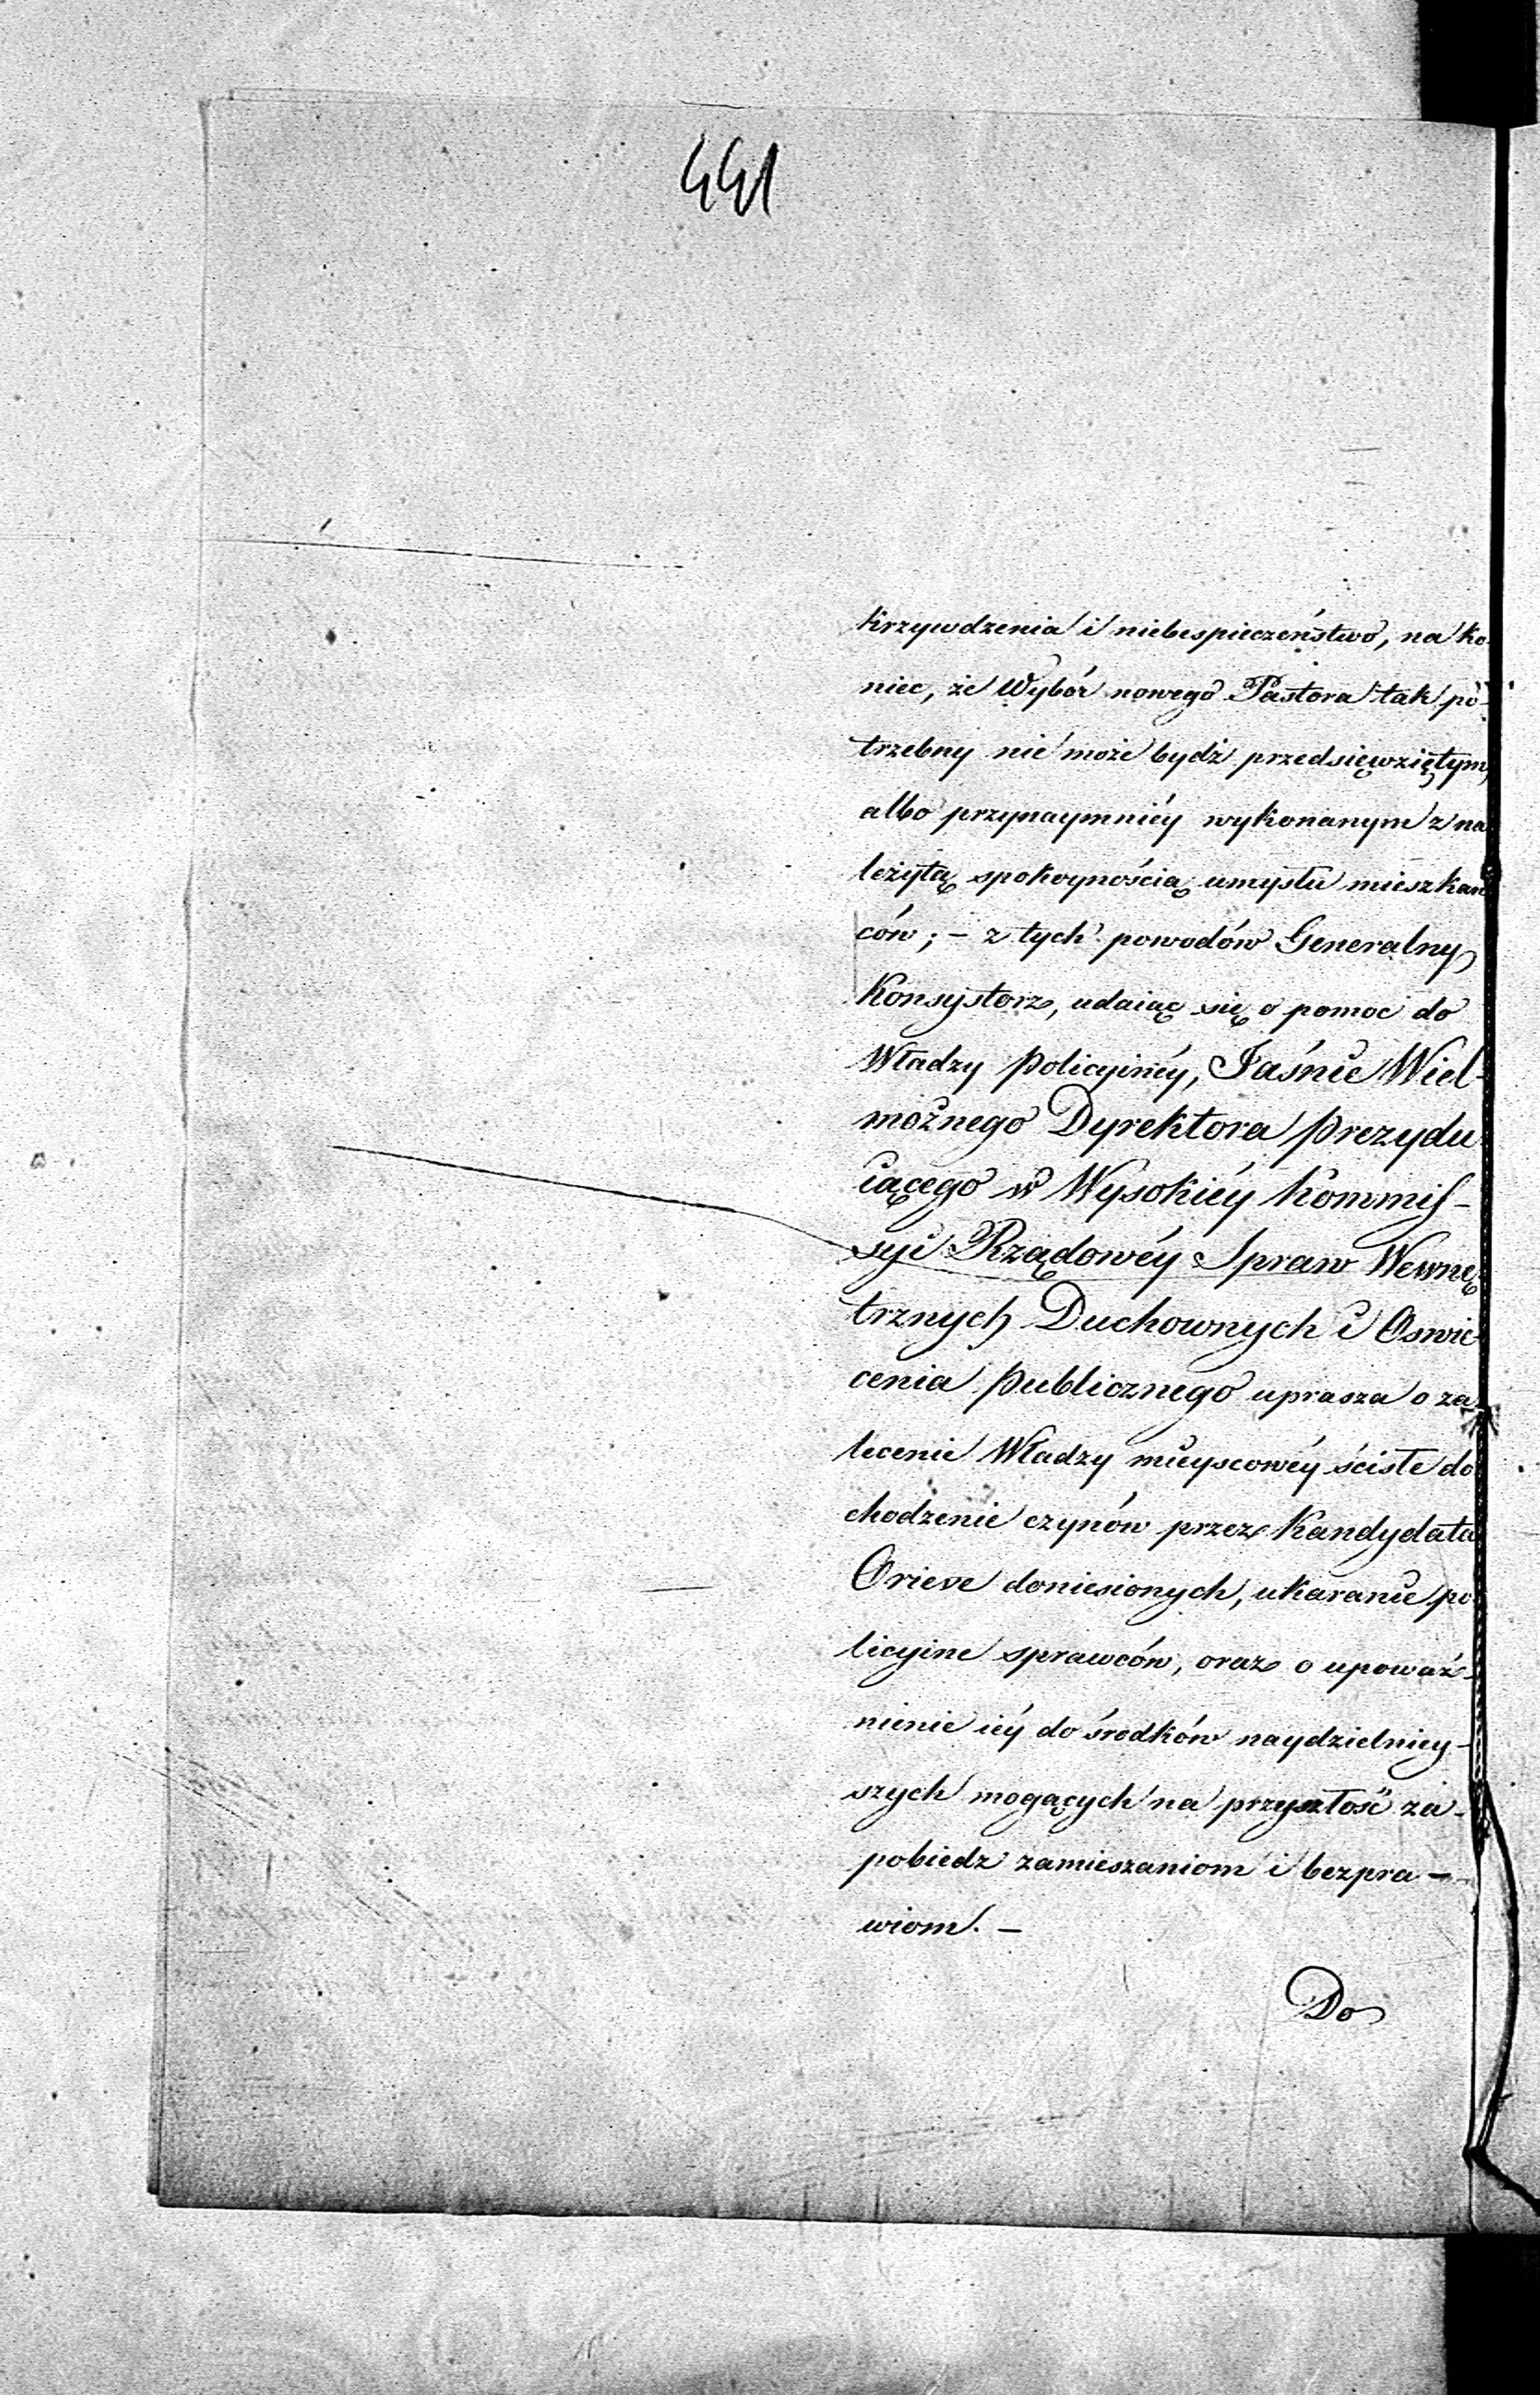 441
krzywdzenia i niebespieczeństwo, na ko-
niec, że Wybór nowego Pastora tak po-
trzebny nie może bydź przedsięwziętym,
albo przynaymniéy wykonanym z na
leżytą spokoynością umysłu mieszkań
ców; - z tych powodów Generalny
Konsystorz, udaiąc się o pomoc do
Władzy Policyinéy, Jaśnie Wiel-
możnego Dyrektora Prezydu
iącego w Wysokiéy Kommis-
syi Rządowéy Spraw Wewnę
trznych Duchownych i Oswie
cenia Publicznego uprasza o za-
lecenie Władzy mieyscowéy ścisłe do
chodzenie czynów przez Kandydata
Orieve doniesionych, ukaranie po
licyine sprawców, oraz o upoważ-
nienie iéy do środków naydzielniey-
szych mogących na przyszłość za-
pobiedz zamieszaniom i bezpra-
wiom. -
Do